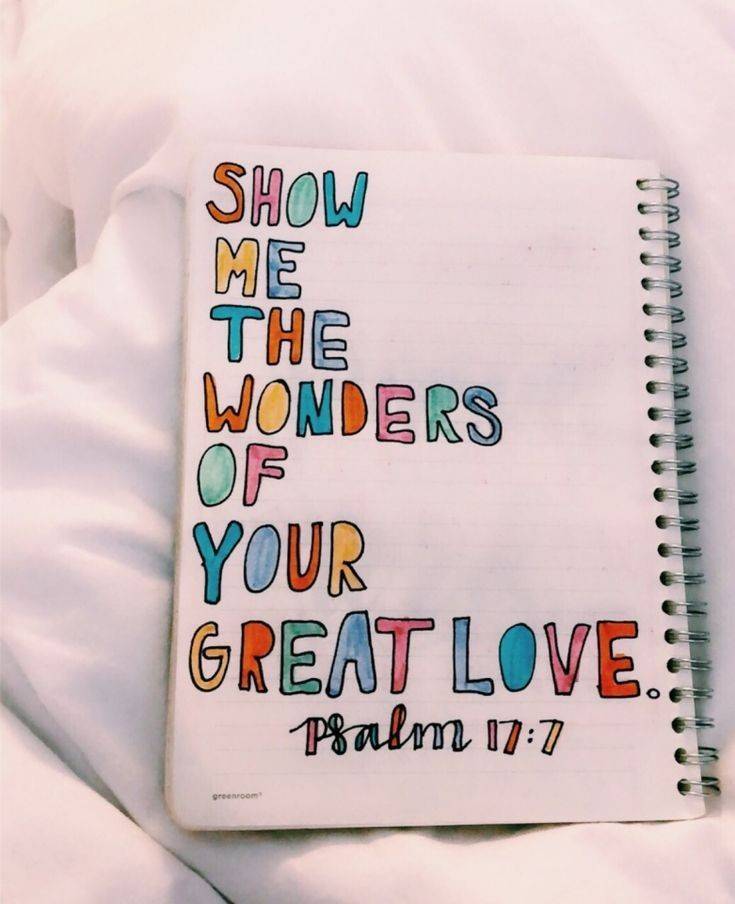 SHOW
ME
THE
WONDERS
OF
YOUR
GREAT LOVE.
psalm 17:7
greenroom